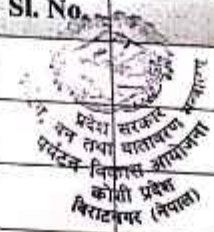 Sl. No.
प्रदेश सरकार
वन तथा वातावरण
पर्यटन विकास आयोजना
कोशी प्रदेश
बिराटनगर (नेपाल)